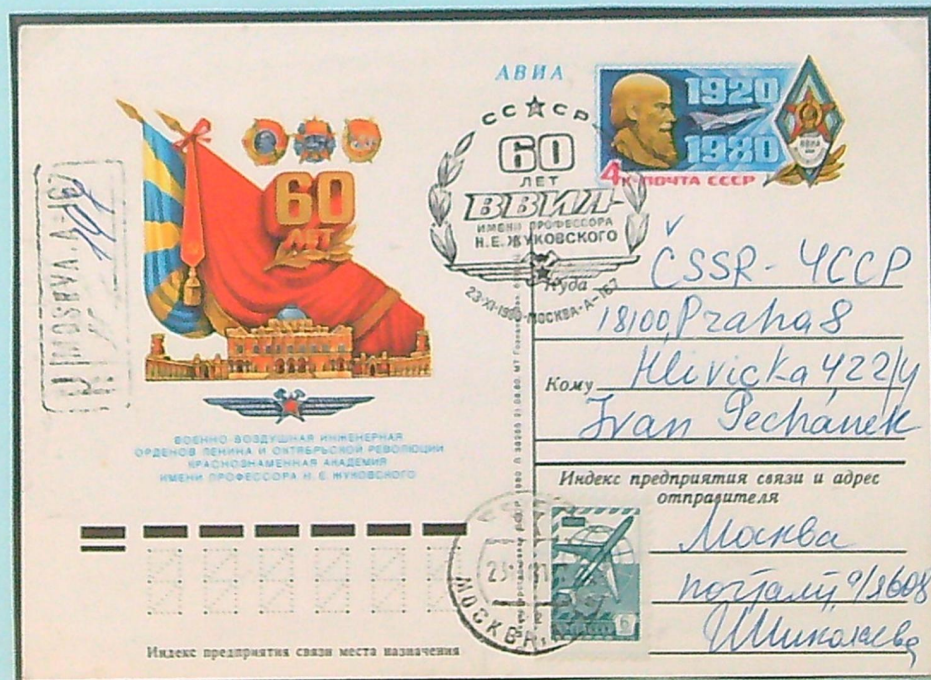 АВИА
1920
1980
4к·ПОЧТА СССР
СССР
60
ЛЕТ
ВВИА
ИМЕНИ ПРОФЕССОРА
Н.Е. ЖУКОВСКОГО
23·XI·1980·МОСКВА-А-167
60
ЛЕТ
MOSKVA, A-167
ВОЕННО-ВОЗДУШНАЯ ИНЖЕНЕРНАЯ
ОРДЕНОВ ЛЕНИНА И ОКТЯБРЬСКОЙ РЕВОЛЮЦИИ
КРАСНОЗНАМЕННАЯ АКАДЕМИЯ
ИМЕНИ ПРОФЕССОРА Н. Е. ЖУКОВСКОГО
Куда ČSSR - ЧССР
18100, Praha 8
Кому Hlivicka 422/4
Ivan Pechánek
Индекс предприятия связи и адрес
отправителя
Москва
МОСКВА
6
Индекс предприятия связи места назначения